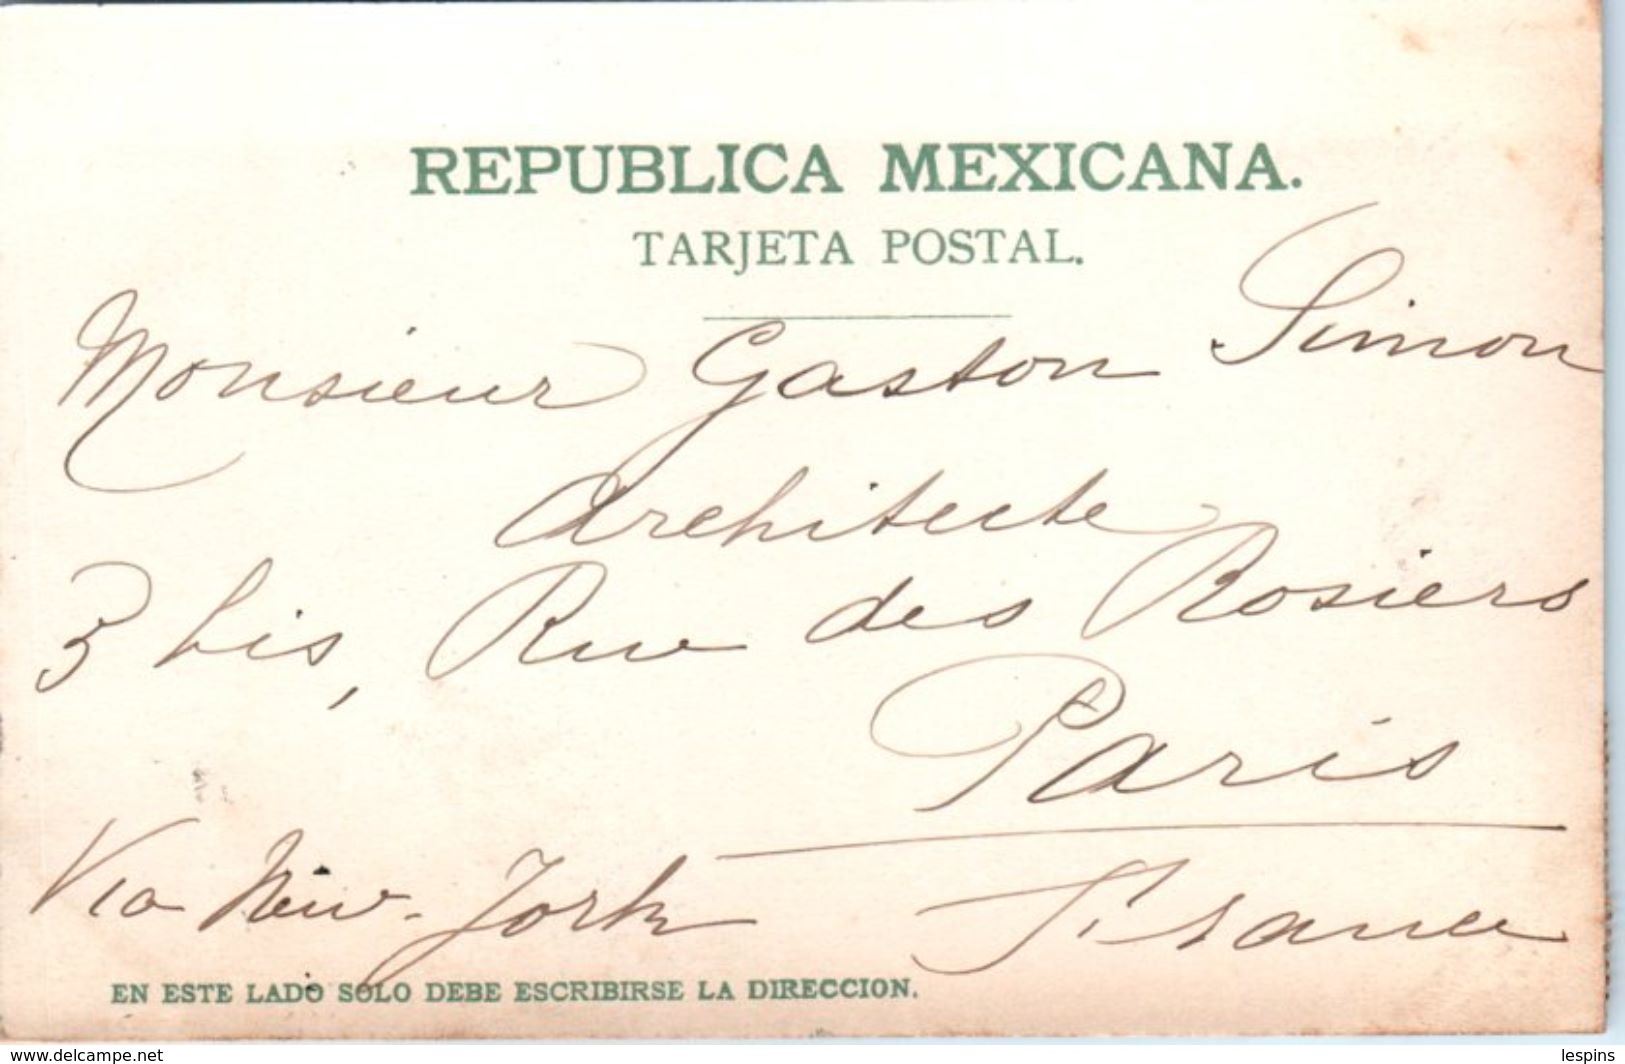 REPUBLICA MEXICANA.
TARJETA POSTAL.
Monsieur Gaston Simon
Architecte
3 bis, Rue des Rosiers
Paris
Via New-York France
EN ESTE LADO SOLO DEBE ESCRIBIRSE LA DIRECCION.
www.delcampe.net lespins